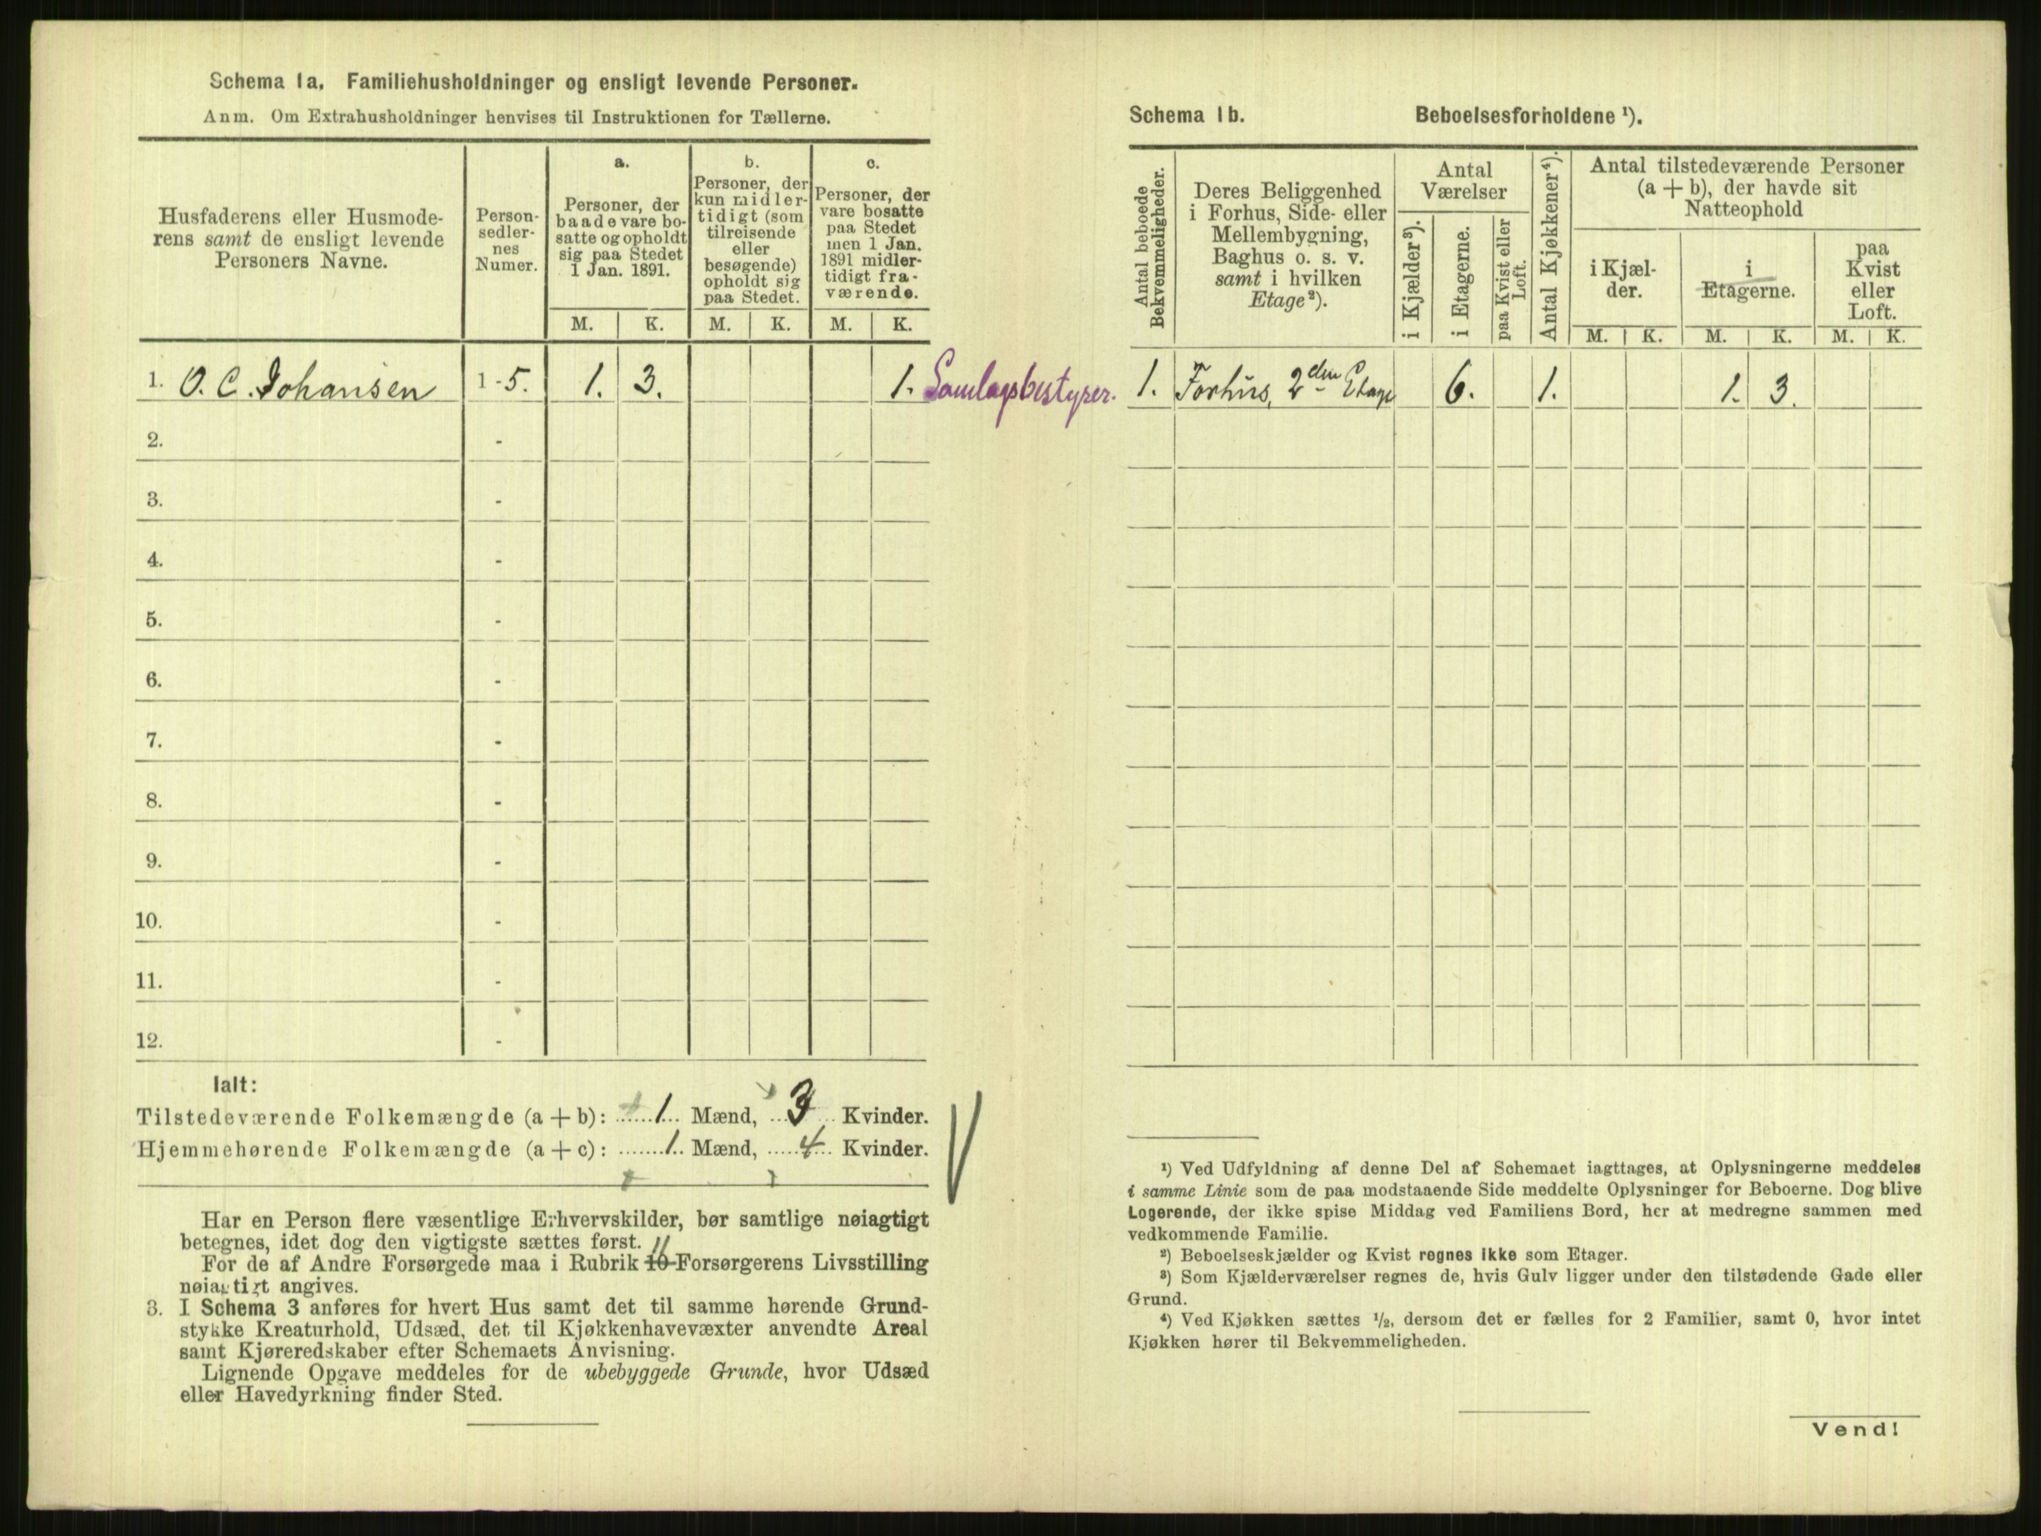 Schema 1a. Familiehusholdninger og ensligt levende Personer.
Anm. Om Extrahusholdninger henvises til Instruktionen for Tællerne.
Husfaderens eller Husmode-
rens samt de ensligt levende
Personers Navne.
Person-
sedler-
nes
Numer.
a.
Personer, der
baade vare bo-
satte og opholdt
sig paa Stedet
1 Jan. 1891.
M. K.
b.
Personer, der
kun midler-
tidigt (som
tilreisende
eller
besøgende)
opholdt sig
paa Stedet.
M. K.
c.
Personer, der
vare bosatte
paa Stedet
men 1 Jan.
1891 midler-
tidigt fra-
værende.
M. K.
1. O. C. Johansen 1 - 5. 1. 3. 1. Samlagsbestyrer.
2. -
3. -
4. -
5. -
6. -
7. -
8. -
9. -
10. -
11. -
12. -
Ialt:
Tilstedeværende Folkemængde (a + b): 1 Mænd, 3 Kvinder.
Hjemmehørende Folkemængde (a + c): 1 Mænd, 4 Kvinder.
Har en Person flere væsentlige Erhvervskilder, bør samtlige nøiagtigt
betegnes, idet dog den vigtigste sættes først.
For de af Andre Forsørgede maa i Rubrik 10 11 Forsørgerens Livsstilling
nøiagtigt angives.
3. I Schema 3 anføres for hvert Hus samt det til samme hørende Grund-
stykke Kreaturhold, Udsæd, det til Kjøkkenhavevæxter anvendte Areal
samt Kjøreredskaber efter Schemaets Anvisning.
Lignende Opgave meddeles for de ubebyggede Grunde, hvor Udsæd
eller Havedyrkning finder Sted.
Schema 1b. Beboelsesforholdene ¹).
Antal beboede
Bekvemmeligheder.
Deres Beliggenhed
i Forhus, Side- eller
Mellembygning,
Baghus o. s. v.
samt i hvilken
Etage²).
Antal
Værelser
i Kjælder³).
i Etagerne.
paa Kvist eller
Loft.
Antal Kjøkkener⁴).
Antal tilstedeværende Personer
(a + b), der havde sit
Natteophold
i Kjæl-
der.
i
Etagerne.
paa
Kvist
eller
Loft.
M. K. M. K. M. K.
1. Forhus, 2den Etage 6. 1. 1. 3.
¹) Ved Udfyldning af denne Del af Schemaet iagttages, at Oplysningerne meddeles
i samme Linie som de paa modstaaende Side meddelte Oplysninger for Beboerne. Dog blive
Logerende, der ikke spise Middag ved Familiens Bord, her at medregne sammen med
vedkommende Familie.
²) Beboelseskjælder og Kvist regnes ikke som Etager.
³) Som Kjælderværelser regnes de, hvis Gulv ligger under den tilstødende Gade eller
Grund.
⁴) Ved Kjøkken sættes ½, dersom det er fælles for 2 Familier, samt 0, hvor intet
Kjøkken hører til Bekvemmeligheden.
Vend!